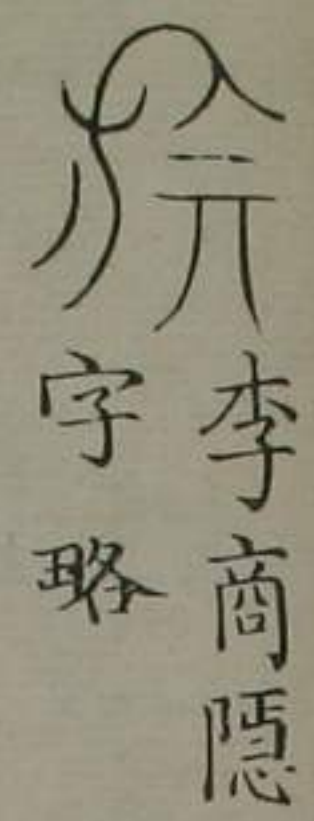 李商隱
字略